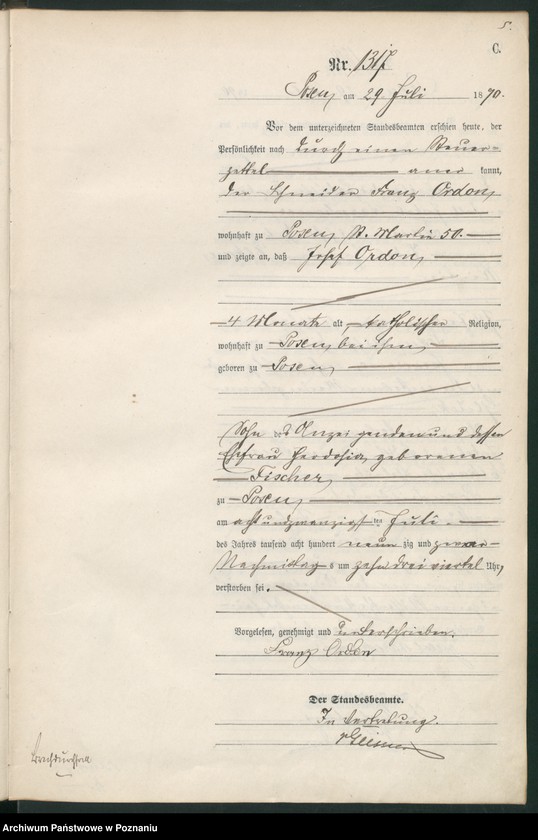 5.
C.
Nr. 1317
Posen, am 29 Juli 1890.
Vor dem unterzeichneten Standesbeamten erschien heute, der
Persönlichkeit nach durch einen Steuer-
zettel anerkannt,
der Schneider Franz Ordon,
wohnhaft zu Posen, St. Martin 50.
und zeigte an, daß Josef Ordon,
4 Monate alt, katholischer Religion,
wohnhaft zu Posen, bei ihm,
geboren zu Posen,
Sohn des Anzeigenden und dessen
Ehefrau Heodosia, geborenen
Fischer,
zu Posen,
am achtundzwanzigsten Juli
des Jahres tausend acht hundert neunzig und zwar
Nachmittags um zehn drei viertel Uhr,
verstorben sei.
Vorgelesen, genehmigt und unterschrieben.
Franz Ordon
Der Standesbeamte.
In Vertretung.
Brechdurchfall
Archiwum Państwowe w Poznaniu